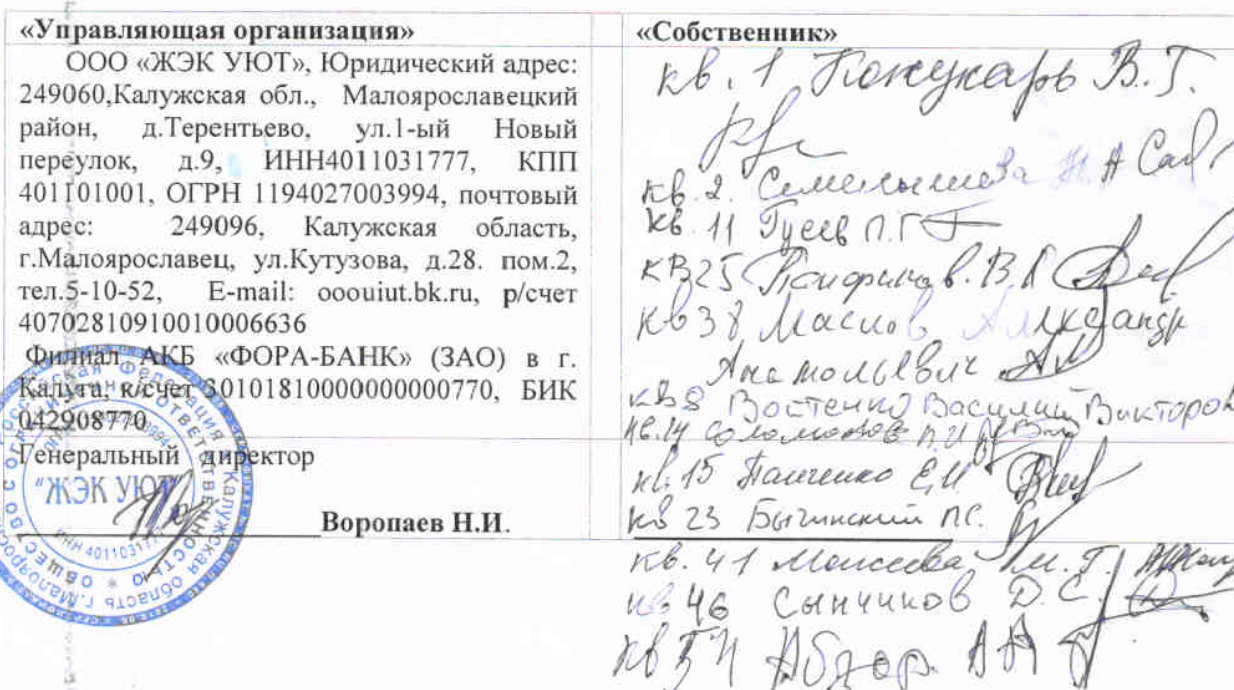 «Управляющая организация»
ООО «ЖЭК УЮТ», Юридический адрес:
249060,Калужская обл., Малоярославецкий
район, д.Терентьево, ул.1-ый Новый
переулок, д.9, ИНН4011031777, КПП
401101001, ОГРН 1194027003994, почтовый
адрес: 249096, Калужская область,
г.Малоярославец, ул.Кутузова, д.28. пом.2,
тел.5-10-52, E-mail: ooouiut.bk.ru, р/счет
40702810910010006636
Филиал АКБ «ФОРА-БАНК» (ЗАО) в г.
Калуга, к/счет 30101810000000000770, БИК
042908770
Генеральный директор
"ЖЭК УЮТ"
Воропаев Н.И.
«Собственник»
кв. 1 Кожукарь В.Г.
кв. 2.
кв. 11 Гусев П.Г
кв 25
кв 38 Маслов Александр
Анатольевич
кв 8 Василий Викторов
кв. 14 Соломонов П.И
кв. 15 Панченко Е.И
кв 23 П.С.
кв. 41 Моисеева М. Г.
кв 46 Сынчиков Д. С.
кв 54